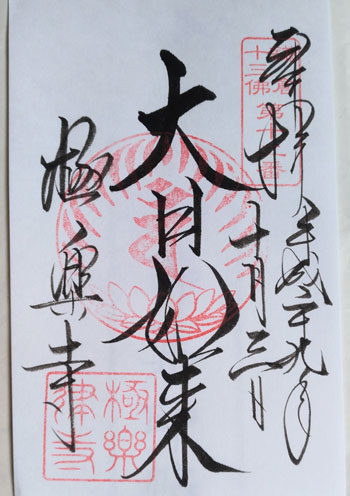 奉拝
平成二十九年
十月三日
大日如来
極楽寺
極樂
律寺
十三佛第十二番